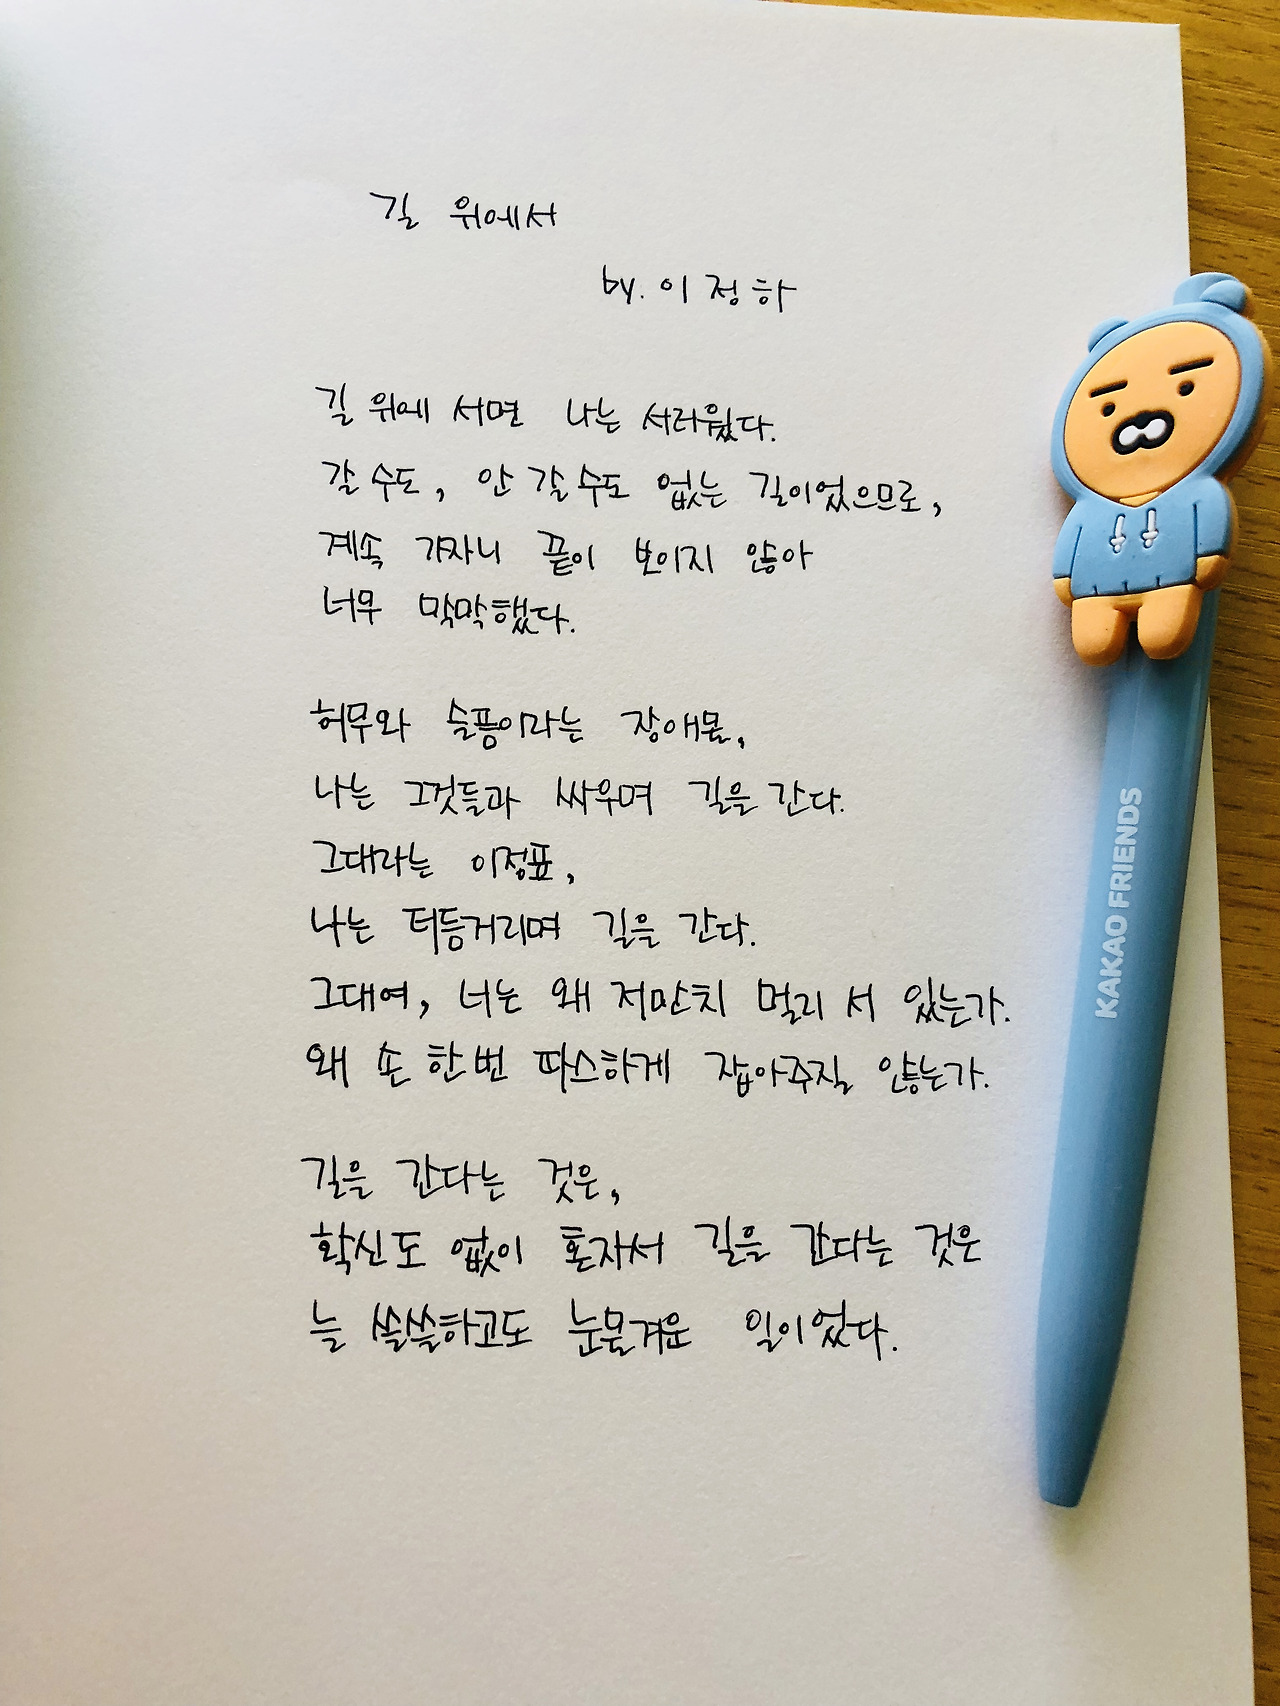 길 위에서
by. 이정하
길 위에 서면 나는 서러웠다.
갈 수도, 안 갈 수도 없는 길이었으므로,
계속 가자니 끝이 보이지 않아
너무 막막했다.
허무와 슬픔이라는 장애물,
나는 그것들과 싸우며 길을 간다.
그대라는 이정표,
나는 터등거리며 길을 간다.
그대여, 너는 왜 저만치 멀리 서 있는가.
왜 손 한 번 따스하게 잡아주질 않는가.
길을 간다는 것은,
확신도 없이 혼자서 길을 간다는 것은
늘 쓸쓸하고도 눈물겨운 일이었다.
KAKAO FRIENDS